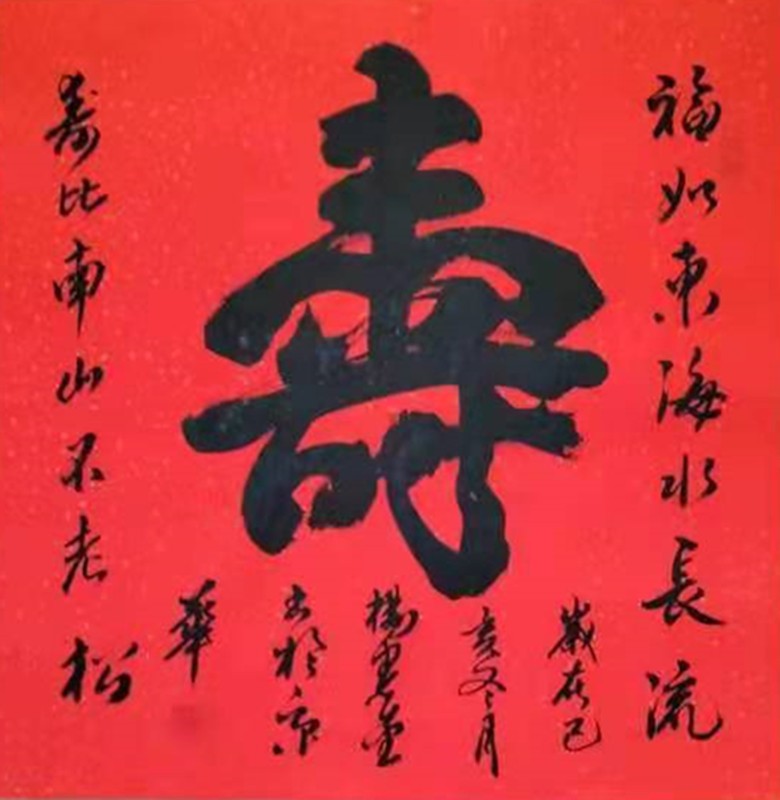 福如東海水長流
壽
壽比南山不老松
歲在己
亥冬月
楊
書於京
華